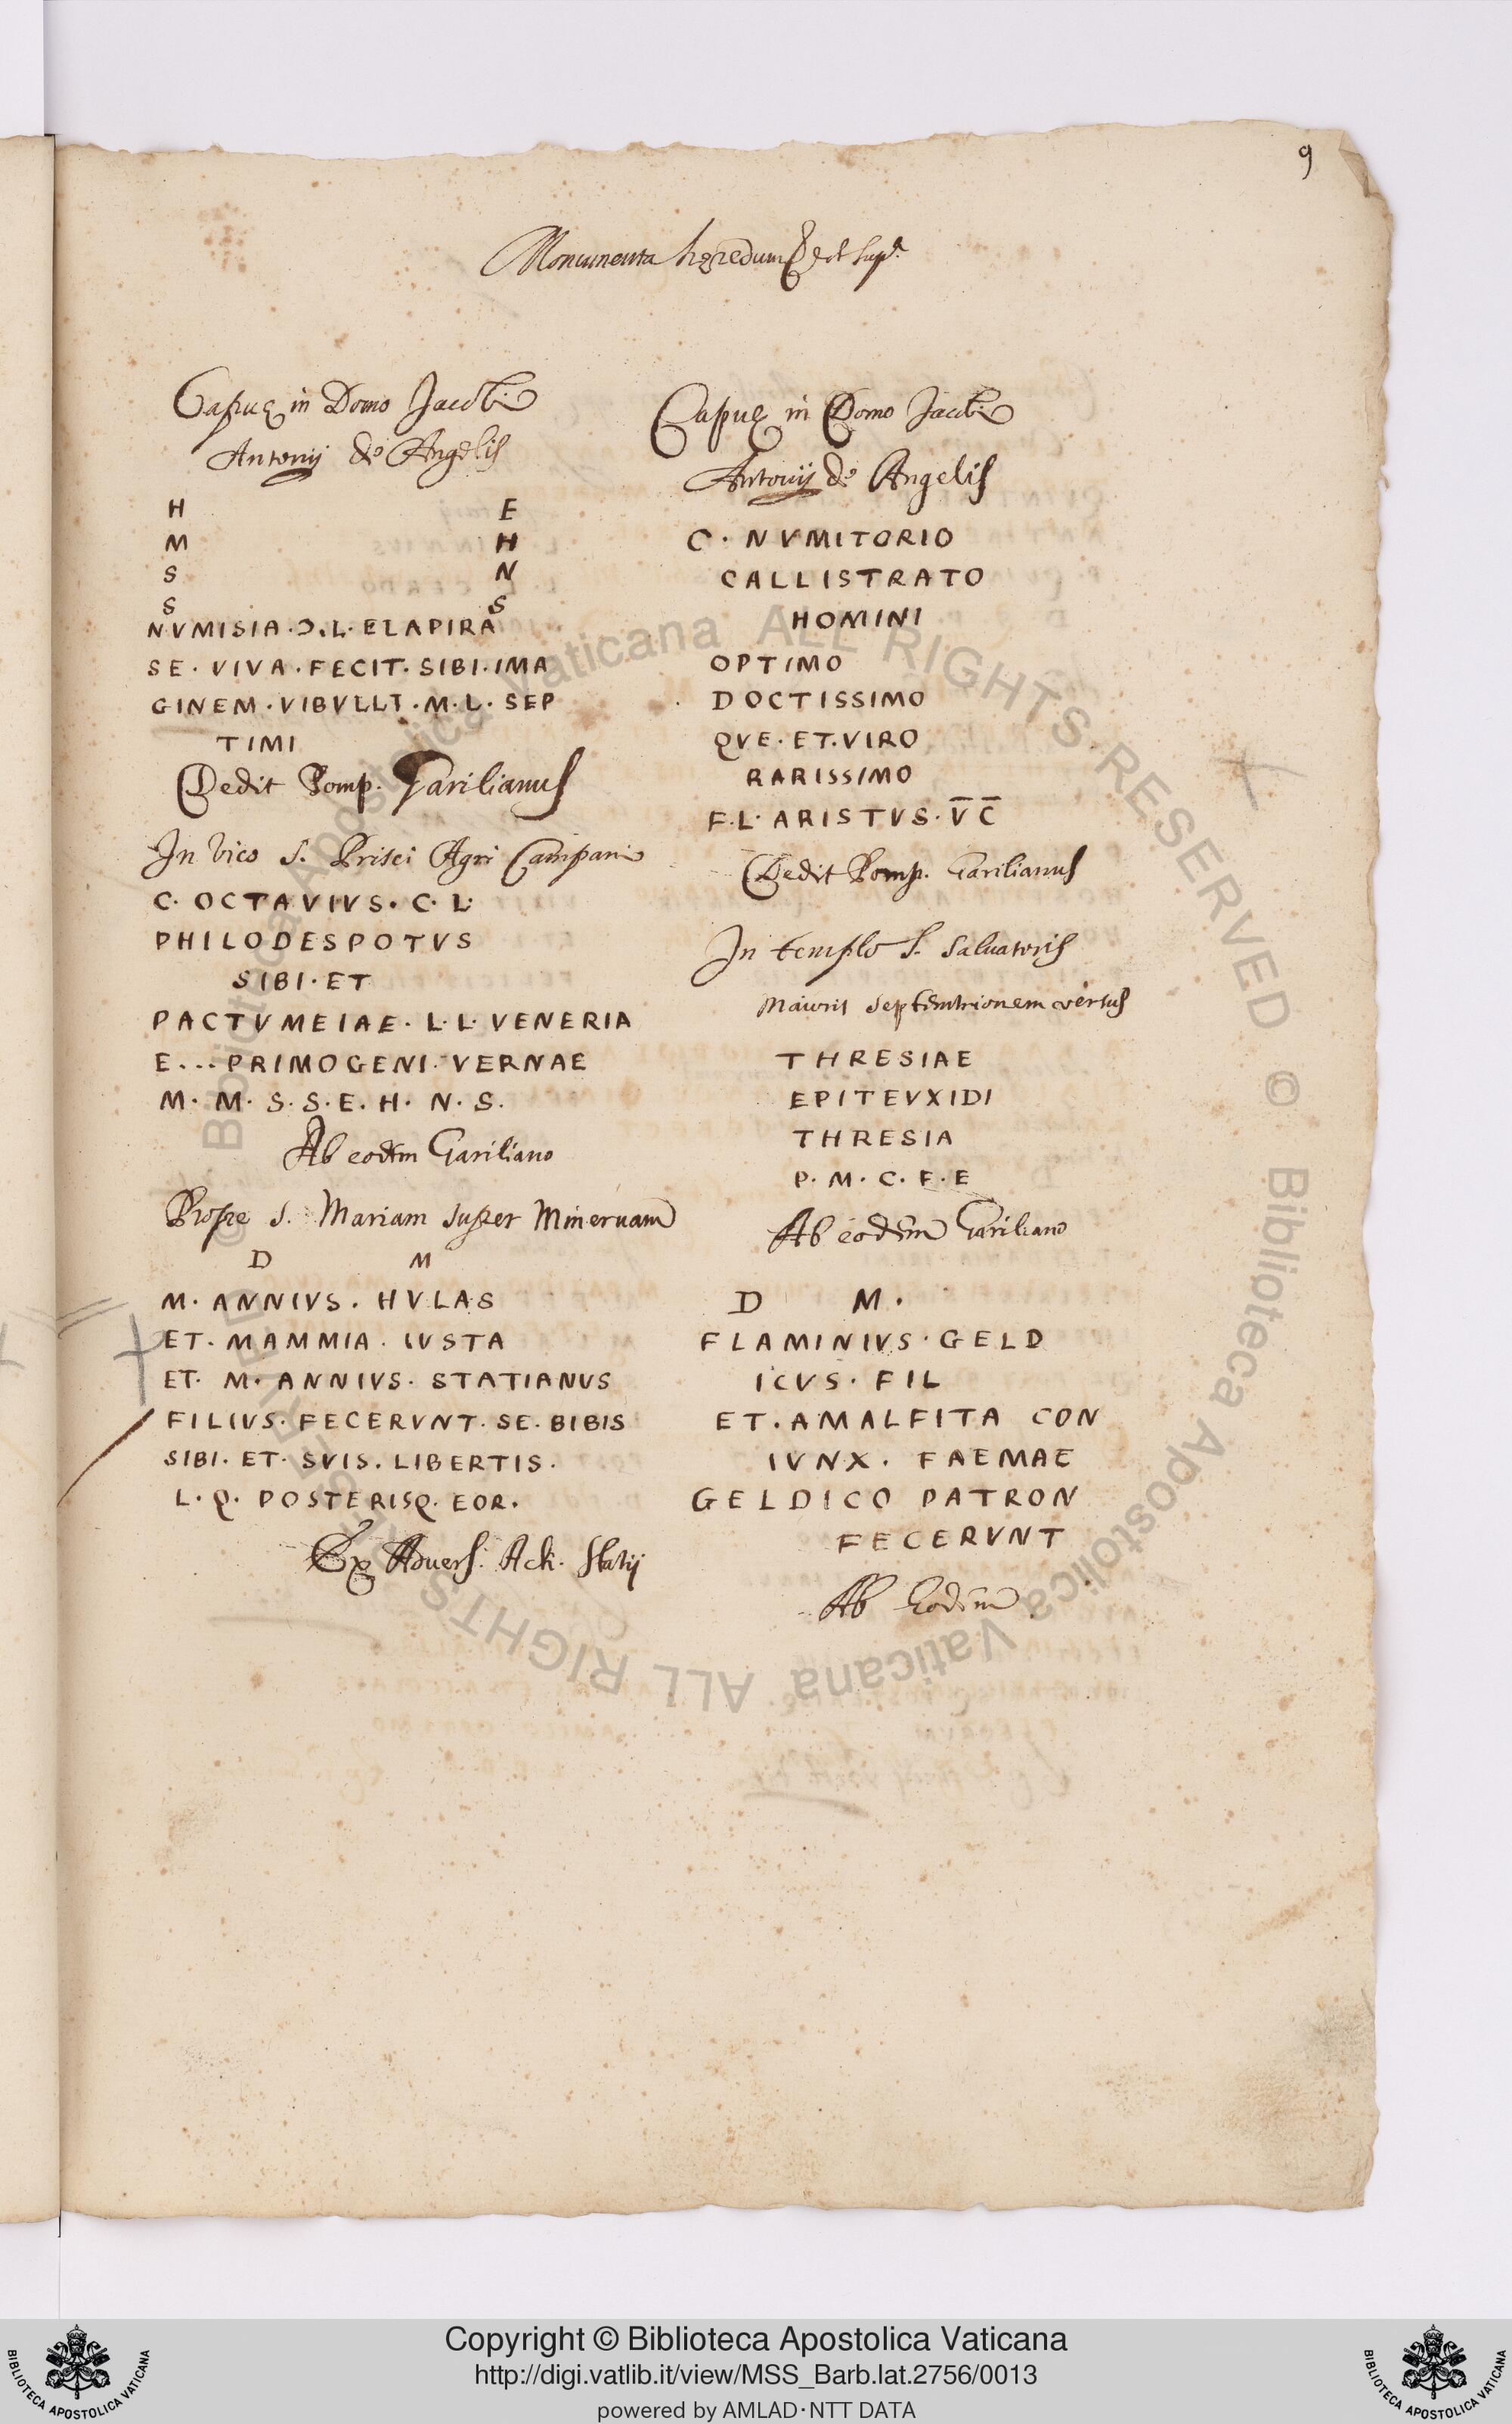 9
Monumenta hęredum
Capuę in Domo Jacobi
Antonij de Angelis
H E
M H
S N
S S
NVMISIA·Ɔ·L·ELAPIRA
SE·VIVA·FECIT·SIBI·IMA
GINEM·VIBVLLT·M·L·SEP
TIMI
Dedit Pomp. Garilianus
In Vico S. Prisci Agri Campani
C·OCTAVIVS·C·L·
PHILODESPOTVS
SIBI·ET
PACTVMEIAE·L·L·VENERIA
E...PRIMOGENI·VERNAE
M·M·S·S·E·H·N·S.
Ab eodem Gariliano
Prope S. Mariam super Mineruam
D M
M·ANNIVS·HVLAS
ET·MAMMIA·IVSTA
ET·M·ANNIVS·STATIANVS
FILIVS·FECERVNT·SE·BIBIS
SIBI·ET·SVIS·LIBERTIS·
L·Q·POSTERISQ·EOR·
Ex Aduers. Ach. Statij
Capuę in Domo Jacobi
Antonij de Angelis
C·NVMITORIO
CALLISTRATO
HOMINI
OPTIMO
DOCTISSIMO
QVE·ET·VIRO
RARISSIMO
F·L·ARISTVS·V̅ C̅
Dedit Pomp. Garilianus
In templo S. Saluatoris
Maioris Septentrionem versus
THRESIAE
EPITEVXIDI
THRESIA
P·M·C·F·E
Ab eodem Gariliano
D M·
FLAMINIVS·GELD
ICVS·FIL
ET·AMALFITA CON
IVNX·FAEMAE
GELDICO PATRON
FECERVNT
Ab Eodem
© Biblioteca Apostolica Vaticana ALL RIGHTS RESERVED © Biblioteca Apostolica Vaticana ALL RIGHTS RESERVED
BIBLIOTECA APOSTOLICA VATICANA
Copyright © Biblioteca Apostolica Vaticana
http://digi.vatlib.it/view/MSS_Barb.lat.2756/0013
powered by AMLAD·NTT DATA
BIBLIOTECA APOSTOLICA VATICANA